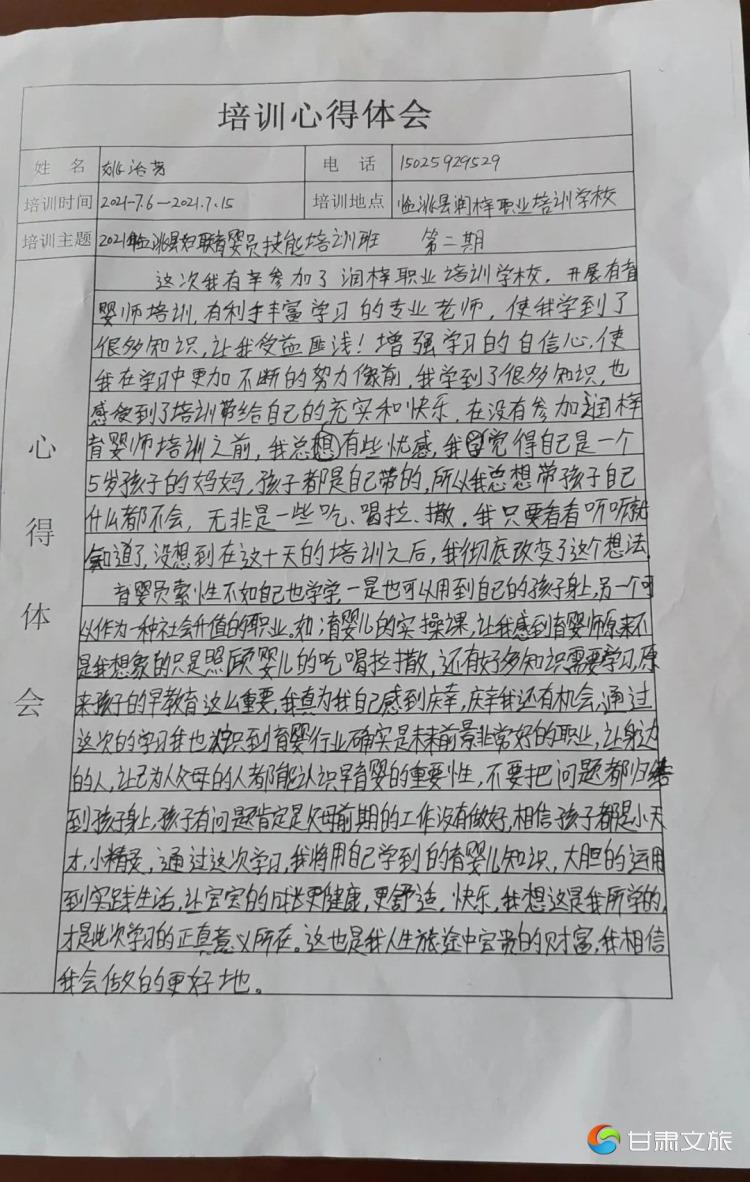 培训心得体会
姓 名 电 话 15025929529
培训时间 2021-7.6—2021.7.15 培训地点 临洮县润梓职业培训学校
培训主题 2021年临洮县妇联育婴员技能培训班 第二期
心得体会
这次我有幸参加了润梓职业培训学校，开展有育
婴师培训，有利手丰富学习的专业老师，使我学到了
很多知识，让我受益匪浅！增强学习的自信心，使
我在学习中更加不断的努力像前，我学到了很多知识，也
感使到了培训带给自己的充实和快乐，在没有参加润梓
育婴师培训之前，我总想有些忧感，我觉得自己是一个
5岁孩子的妈妈，孩子都是自己带的，所以我总想带孩子自己
什么都不会，无非是一些吃、喝拉、撒，我只要看看听听就
知道了，没想到在这十天的培训之后，我彻底改变了这个想法，
育婴员索性不如自己也学学，一是也可以用到自己的孩子身上，另一个可
以作为一种社会价值的职业。如；育婴儿的实操课，让我感到育婴师原来不
是我想象的只是照顾婴儿的吃喝拉撒，还有好多知识需要学习，原
来孩子的早教育这么重要，我真为我自己感到庆幸，庆幸我还有机会，通过
这次的学习我也识到育婴行业确实是未来前景非常好的职业，让身边
的人，让已为人父母的人都能认识早育婴的重要性，不要把问题都归结
到孩子身上，孩子有问题肯定是父母前期的工作没有做好，相信孩子都是小天
才，小精灵，通过这次学习，我将用自己学到的育婴儿知识，大胆的运用
到实践生活，让宝宝的成长更健康，更舒适，快乐，我想这是我所学的，
才是此次学习的正真意义所在。这也是我人生旅途中宝贵的财富，我相信
我会做的更好地。
甘肃文旅